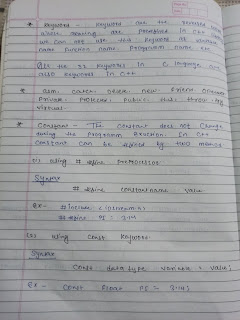 * Keyword - Keyword are the reserved
whose meaning are Predefine in C++
we can not use this Keyword as variable
name function name, Programm name etc.
All the 32 Keywords in C language
also Keywords in C++
* asm, catch, delete, new, friend, operator
Private, Protected, Public, this, throw,
virtual
* Constant - The Constant does not change
during the Programm Execution. In C++
constant can be defined by two method
(1) using # define PreProcessor
Syntax
# define constantname value
Ex- # include <iostream.h>
# define PI = 3.14
(2) using const Keyword
Syntax
Const datatype variable = value;
Ex - Const float PI = 3.14;